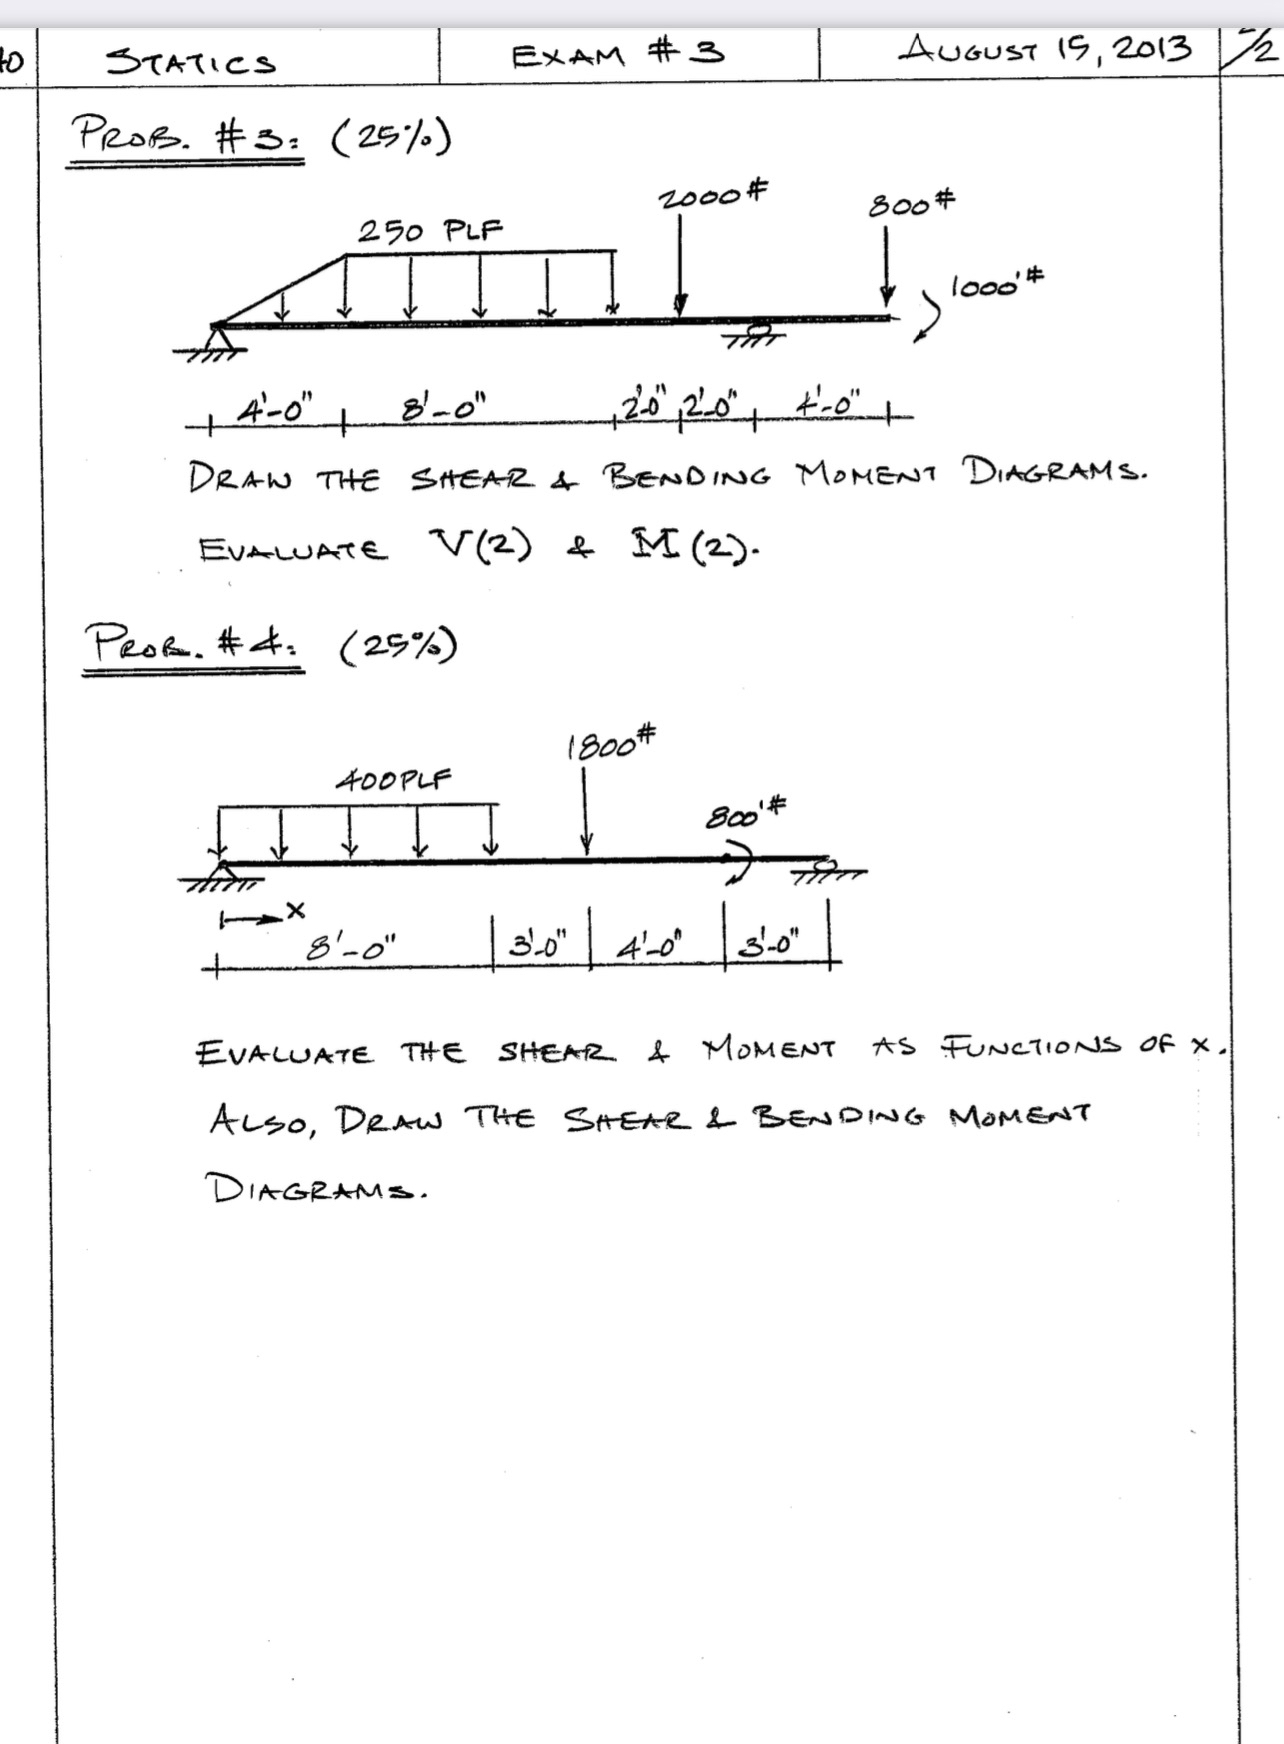 STATICS EXAM # 3 AUGUST 15, 2013 /2
PROB. #3: (25%)
2000#
800#
250 PLF
1000'#
4'-0" 8'-0" 2'-0" 2'-0" 4'-0"
DRAW THE SHEAR & BENDING MOMENT DIAGRAMS.
EVALUATE V(2) & M(2).
PROB. #4: (25%)
1800#
400PLF
800'#
x
8'-0" 3'-0" 4'-0" 3'-0"
EVALUATE THE SHEAR & MOMENT AS FUNCTIONS OF x.
ALSO, DRAW THE SHEAR & BENDING MOMENT
DIAGRAMS.